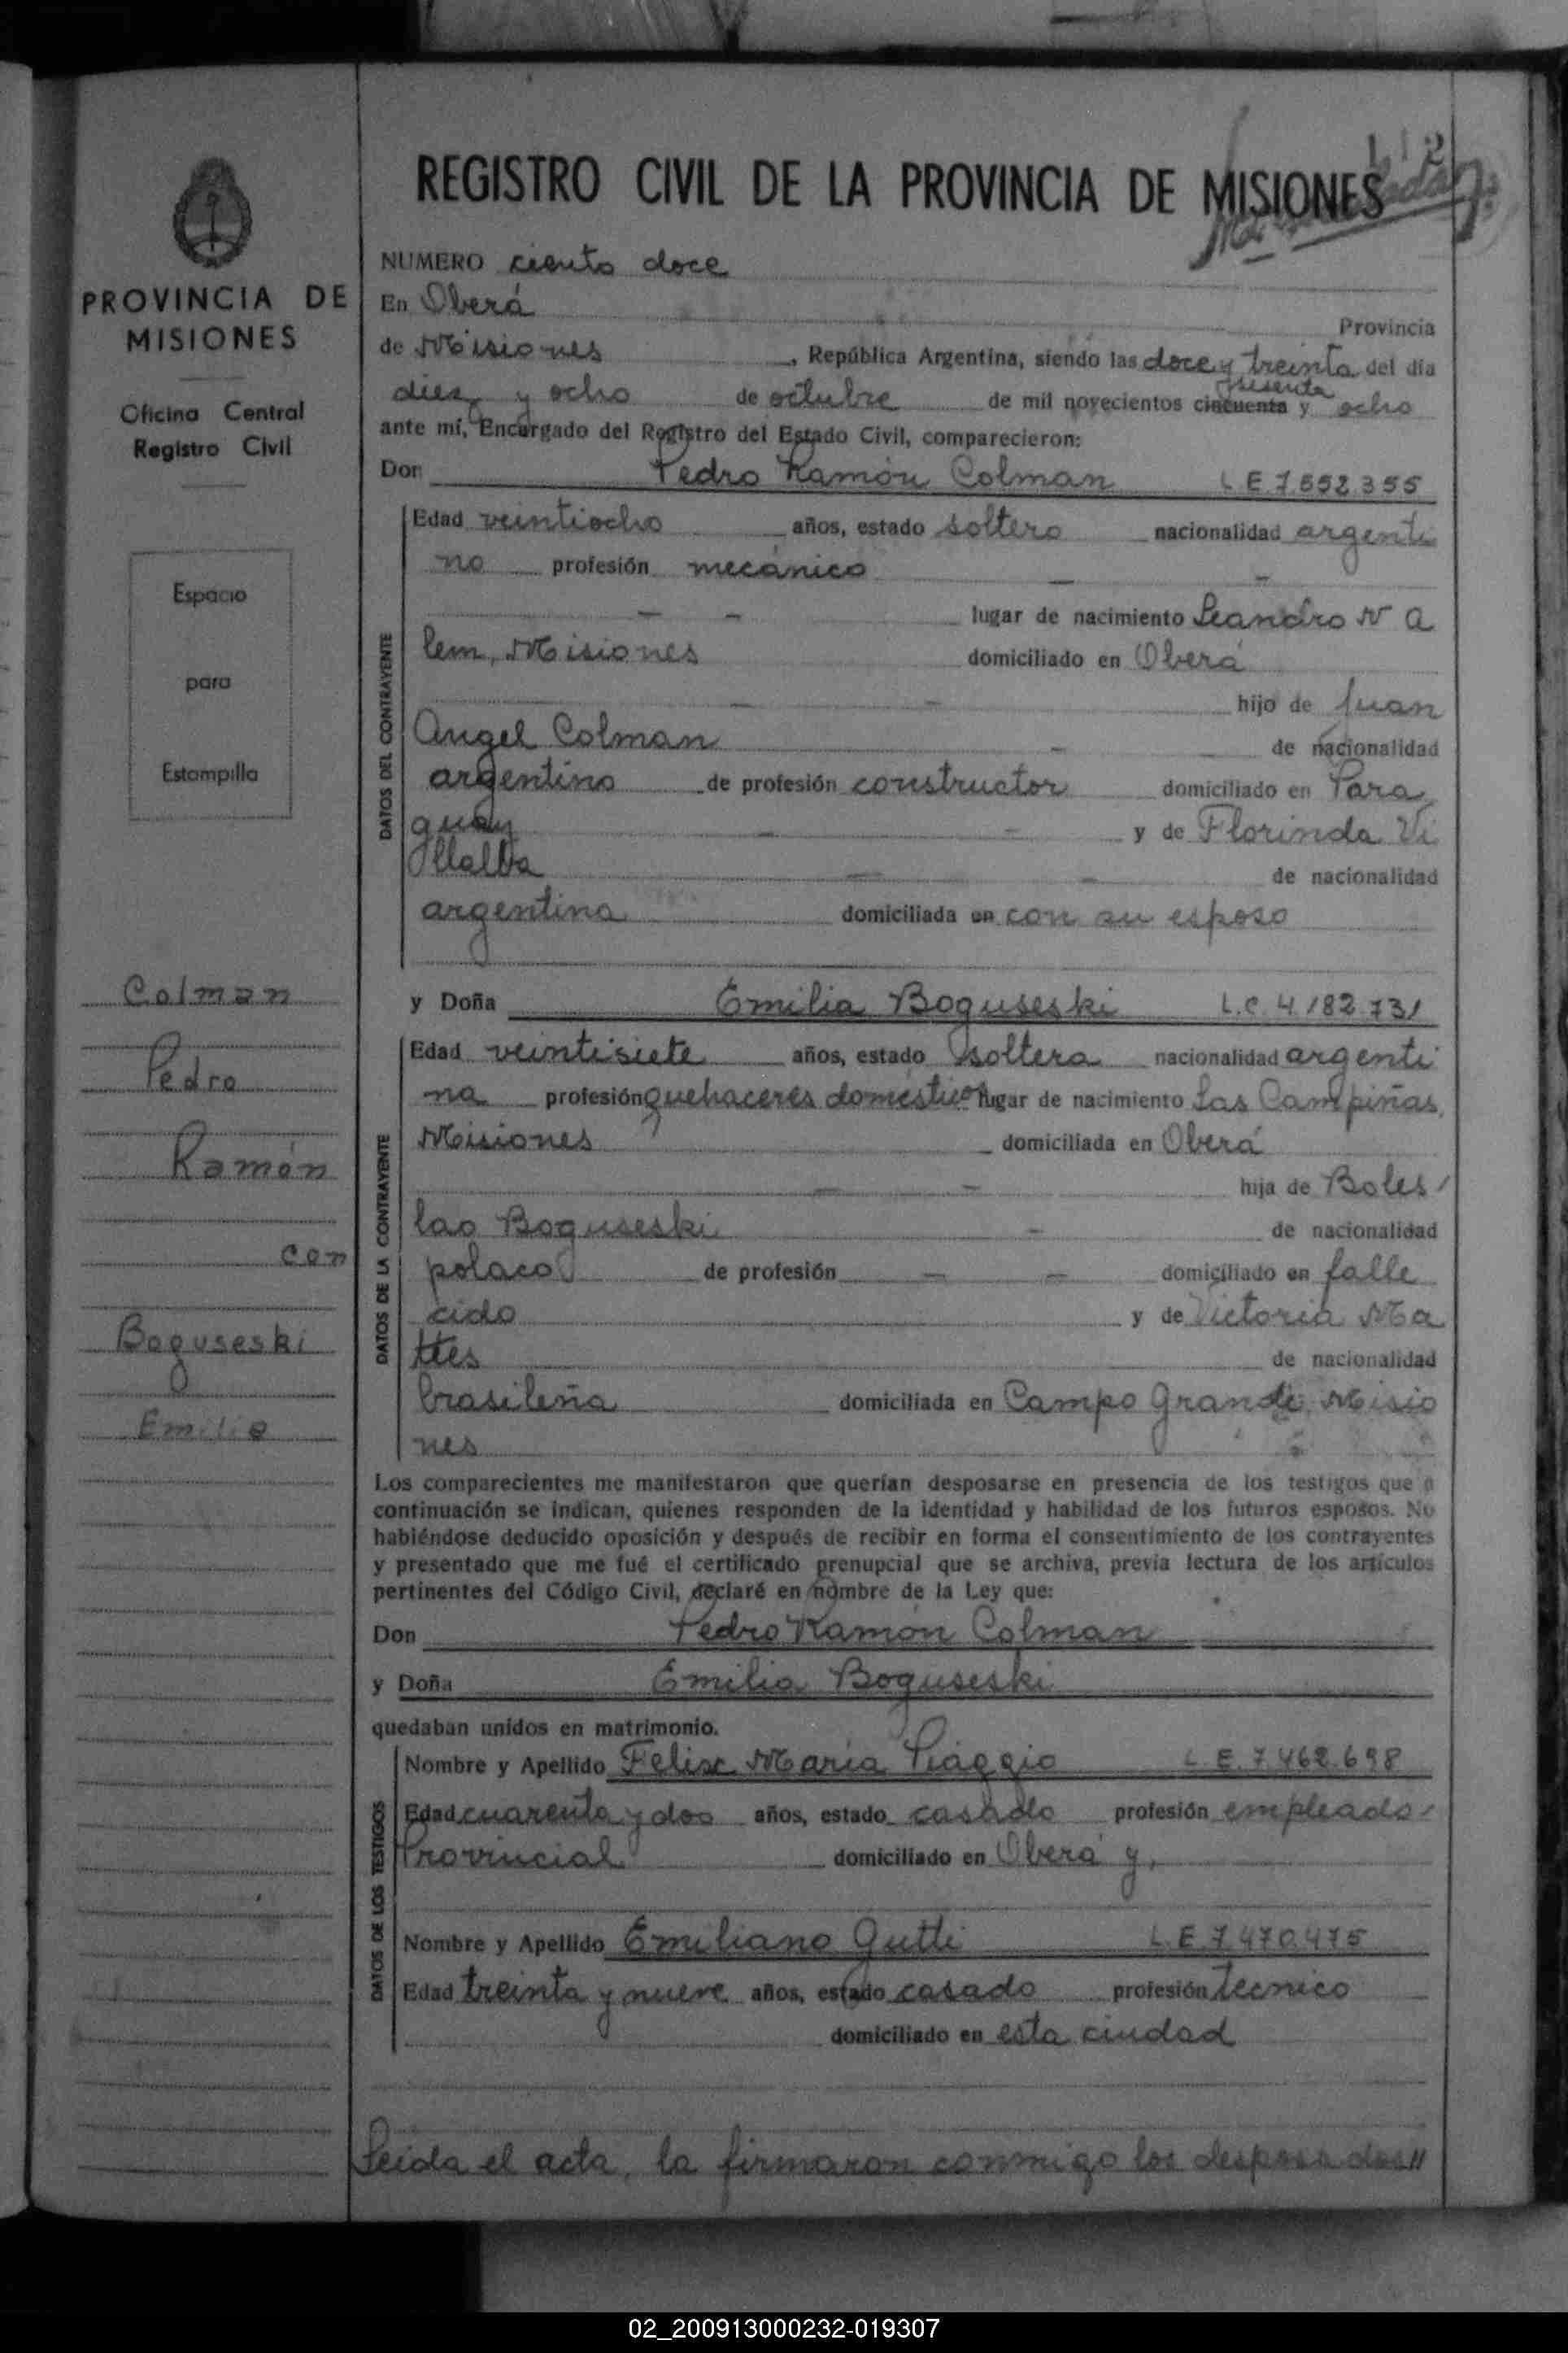 112
REGISTRO CIVIL DE LA PROVINCIA DE MISIONES
NUMERO ciento doce
PROVINCIA DE
MISIONES
Oficina Central
Registro Civil
Espacio
para
Estampilla
Colman
Pedro
Ramón
con
Boguseski
Emilia
En Oberá
Provincia
de Misiones, República Argentina, siendo las doce y treinta del día
sesenta
diez y ocho de octubre de mil novecientos cincuenta y ocho
ante mí, Encargado del Registro del Estado Civil, comparecieron:
Don Pedro Ramón Colman L E 7.552.355
DATOS DEL CONTRAYENTE
Edad veintiocho años, estado soltero nacionalidad argenti
no profesión mecánico — —
— — lugar de nacimiento Leandro N A
lem, Misiones domiciliado en Oberá
— — hijo de Juan
Angel Colman — de nacionalidad
argentino de profesión constructor domiciliado en Para
guay — — y de Florinda Vi
llalba — — de nacionalidad
argentina domiciliada en con su esposo
y Doña Emilia Boguseski L.C. 4.182.731
DATOS DE LA CONTRAYENTE
Edad veintisiete años, estado soltera nacionalidad argenti
na profesión quehaceres domésticos lugar de nacimiento Las Campiñas,
Misiones domiciliada en Oberá
— — hija de Boles/
lao Boguseski — de nacionalidad
polaco de profesión — — domiciliado en falle
cido y de Victoria Ma
ttes de nacionalidad
brasileña domiciliada en Campo Grande, Misio
nes
Los comparecientes me manifestaron que querían desposarse en presencia de los testigos que a
continuación se indican, quienes responden de la identidad y habilidad de los futuros esposos. No
habiéndose deducido oposición y después de recibir en forma el consentimiento de los contrayentes
y presentado que me fué el certificado prenupcial que se archiva, previa lectura de los artículos
pertinentes del Código Civil, declaré en nombre de la Ley que:
Don Pedro Ramón Colman
y Doña Emilia Boguseski
quedaban unidos en matrimonio.
DATOS DE LOS TESTIGOS
Nombre y Apellido Felix María Piaggio L.E. 7.462.698
Edad cuarenta y dos años, estado casado profesión empleado/
Provincial domiciliado en Oberá y,
Nombre y Apellido Emiliano Gutti L.E 7.470.475
Edad treinta y nueve años, estado casado profesión tecnico
domiciliado en esta ciudad
Leida el acta, la firmaron conmigo los desposados//
02_200913000232-019307